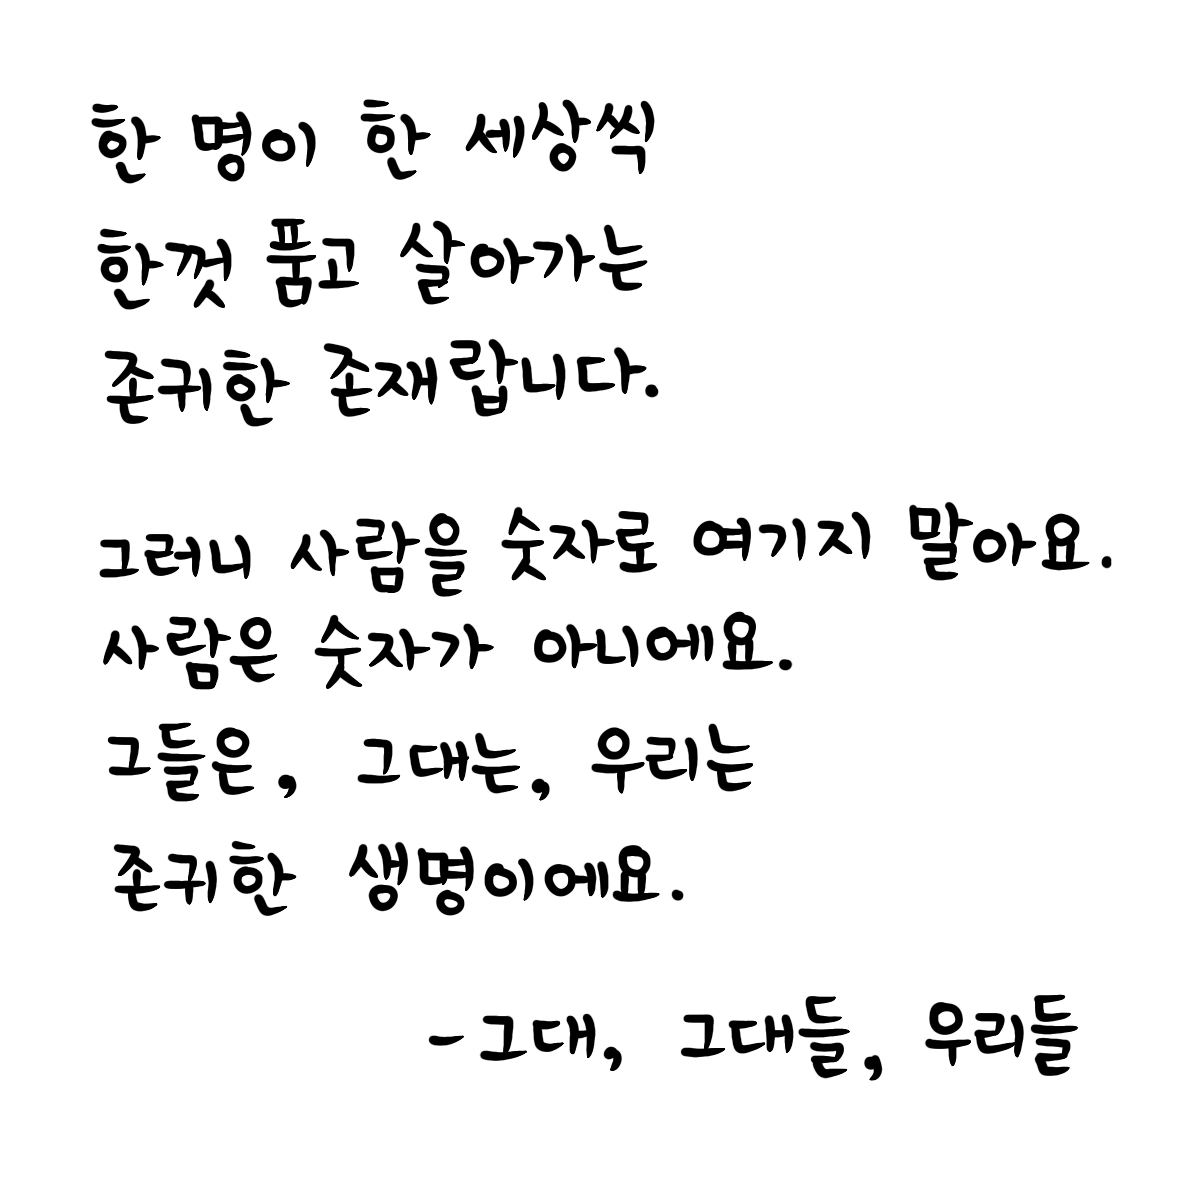 한 명이 한 세상씩
한껏 품고 살아가는
존귀한 존재랍니다.
그러니 사람을 숫자로 여기지 말아요.
사람은 숫자가 아니에요.
그들은, 그대는, 우리는
존귀한 생명이에요.
-그대, 그대들, 우리들